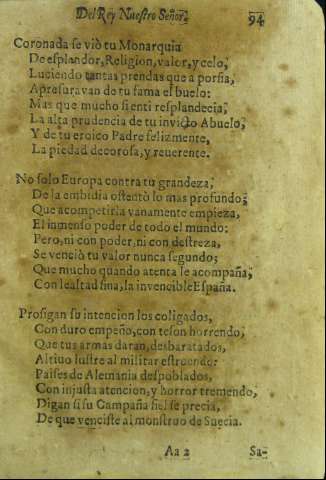 Del Rey Nuestro Señor. 94
Coronada se viò tu Monarquia
De esplendor, Religion, valor, y celo,
Luciendo tantas prendas que a porfia,
Apresuravan de tu fama el buelo:
Mas que mucho si en ti resplandecia,
La alta prudencia de tu invicto Abuelo,
Y de tu eroico Padre felizmente,
La piedad decorosa, y reverente.
No solo Europa contra tu grandeza,
De la embidia ostentò lo mas profundo;
Que a competirla vanamente empieza,
El inmenso poder de todo el mundo:
Pero, ni con poder, ni con destreza,
Se venciò tu valor nunca segundo;
Que mucho quando atenta le acompaña,
Con lealtad fina, la invencible España.
Prosigan su intencion los coligados,
Con duro empeño, con teson horrendo,
Que tus armas daràn, desbaratados,
Altivo lustre al militar estruendo:
Paises de Alemania despoblados,
Con injusta atencion, y horror tremendo,
Digan si su Campaña fiel se precia,
De que venciste al monstruo de Suecia.
Aa 2 Sa-